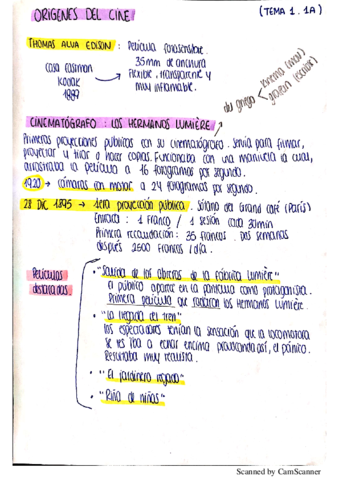 ORIGENES DEL CINE
(TEMA 1. 1A)
THOMAS ALVA EDISON : Película fotosensible.
35mm de anchura
Casa Eastman
Flexible, transparente y
KODAK
muy inflamable.
1887
del griego
kinema (mov)
grafein (escribir)
CINEMATÓGRAFO : LOS HERMANOS LUMIÈRE
Primeras proyecciones públicas con su cinematógrafo. Servía para filmar,
proyectar y tirar o hacer copias. Funcionaba con una manivela la cual,
arrastraba la película a 16 fotogramas por segundo.
1920 → cámaras con motor a 24 fotogramas por segundo.
28 Dic 1895 → 1era proyección pública. Sótano del Grand café (París)
Entrada : 1 franco / 1 sesión cada 30min
Primera recaudación: 35 francos. Dos semanas
después 2500 francos / día.
Películas
destacadas
• "Salida de los obreros de la fábrica Lumière"
El público aparece en la pantalla como protagonista.
Primera película que rodaron los Hermanos Lumière.
• "La llegada del tren"
Los espectadores tenían la sensación que la locomotora
se les iba a echar encima provocando así, el pánico.
Resultaba muy realista.
• "El jardinero regado"
• "Riña de niños"
Scanned by CamScanner